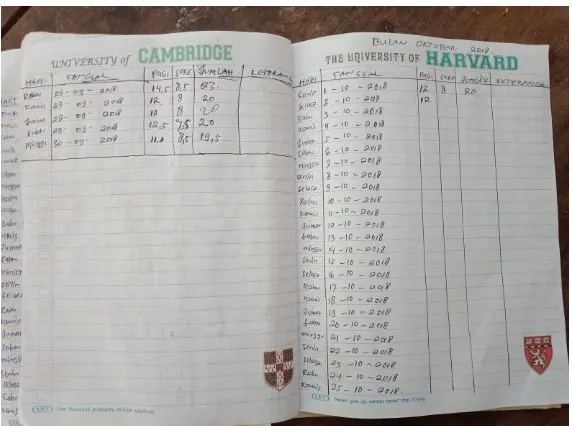 UNIVERSITY of CAMBRIDGE
HARI TANGGAL PAGI SORE JUMLAH KETERANG
Rabu 26-09-2018 14,5 8,5 23
Kamis 27-09-2018 12 8 20
Jumat 28-09-2018 12 8 20
Sabtu 29-09-2018 12,5 7,5 20
Minggu 30-09-2018 8,5 19,5
One thousand problems, million solutions
BULAN OKTOBER 2018.
THE UNIVERSITY OF HARVARD
HARI TANGGAL PAGI SORE JUMLAH KETERANGAN
Senin 1-10-2018 12 8 20
Selasa 2-10-2018 12
Rabu 3-10-2018
Kamis 4-10-2018
Jumat 5-10-2018
Sabtu 6-10-2018
Minggu 7-10-2018
Senin 8-10-2018
Selasa 9-10-2018
Rabu 10-10-2018
Kamis 11-10-2018
Jumat 12-10-2018
Sabtu 13-10-2018
Minggu 14-10-2018
Senin 15-10-2018
Selasa 16-10-2018
Rabu 17-10-2018
Kamis 18-10-2018
Jumat 19-10-2018
Sabtu 20-10-2018
Minggu 21-10-2018
Senin 22-10-2018
Selasa 23-10-2018
Rabu 24-10-2018
Kamis 25-10-2018.
Never give up, never stop trying